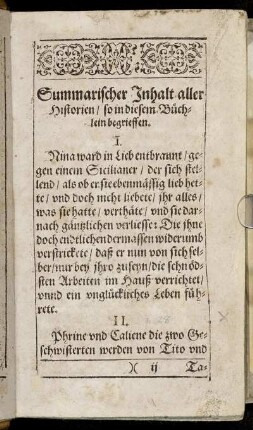 Summarischer Inhalt aller
Historien / so in diesem Büch-
lein begrieffen.
I.
Nina ward in Lieb entbrannt / ge-
gen einem Sicilianer / der sich stel-
lend / als ob er sie ebenmässig lieb het-
te / vnd doch nicht liebete / jhr alles /
was sie hatte / verthäte / vnd sie dar-
nach gäntzlichen verliesse: Die jhne
doch endtlichen dermassen widerumb
verstrickete / daß er nun von sich sel-
ber / nur bey jhro zu seyn / die schnöd-
sten Arbeiten im Hauß verrichtet /
vnnd ein vnglückliches Leben füh-
rete.
II.
Phrine vnd Caliene die zwo Ge-
schwisterten werden von Tito vnd
)( ij Ta-